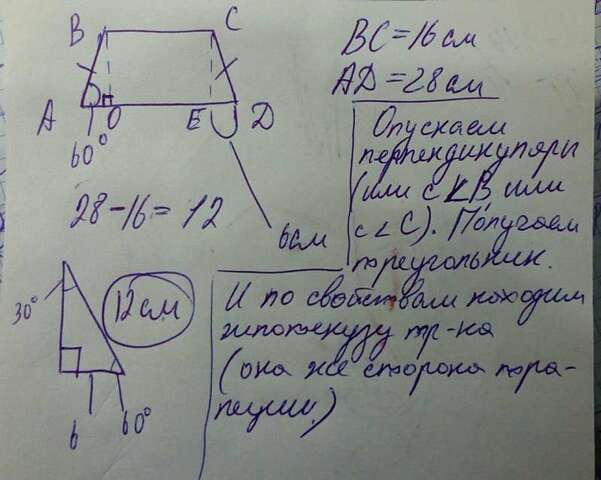 B C
A O E D
60°
BC = 16 см
AD = 28 см
28 - 16 = 12
6 см
Опускаем
перпендикуляры
(или с ∠B, или
с ∠ C). Получаем
треугольник.
И по свойствам находим
гипотенузу тр-ка
(она же сторона тра-
пеции.)
30°
12 см
6 60°